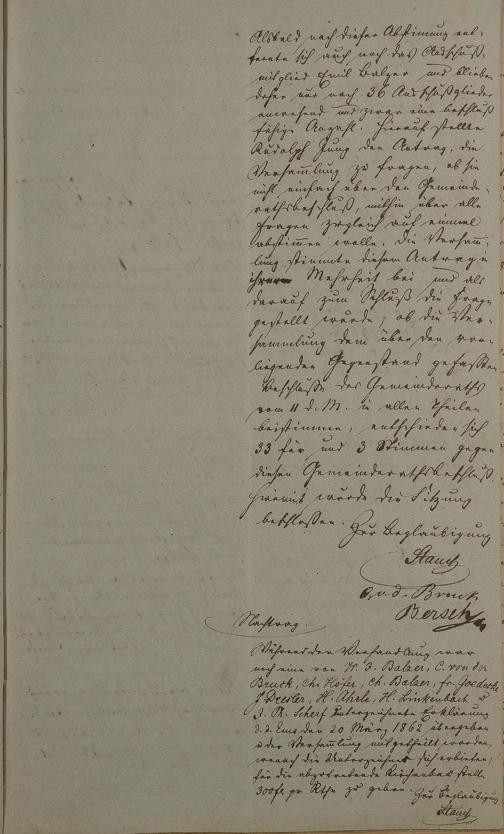 Alsbald nach dieser Abstimmung ent-
fernte sich auch noch das Ausschuß-
mitglied Emil Balzer und blieben
daher nur noch 36 Ausschußglieder
anwesend und zwar eine beschluß
fähige Anzahl. Hierauf stellte
Rudolph Jung den Antrag, die
Versammlung zu fragen, ob sie
nicht einfach über den Gemeinde-
rathsbeschluß, mithin über alle
Fragen zugleich auf einmal
abstimmen wolle. Die Versamm-
lung stimmte diesem Antrage
Mehrheit bei und als
darauf zum Schluß die Frage
gestellt wurde, ob die Ver-
sammlung dem über den vor-
liegenden Gegenstand gefaßten
Beschlusse des Gemeinderaths
vom 11 d. M. in allen Theilen
beistimme, entschieden sich
33 für und 3 Stimmen gegen
diesen Gemeinderathsbeschluß.
Hiermit wurde die Sitzung
beschlossen.
Zur Beglaubigung
Stauch
v. d. Bruck
Bersch
Nachtrag.
Während der Verhandlung war
noch eine von W. J. Balzer, C. von der
Bruck, Ch. Höfer, Ch. Balzer, fr. Goedecke
J. Deeler, H. Ahrle, H. Linkenbach u
J. Ph. Scherf unterzeichnete Erklärung
d. d. Ems den 20 März 1862 übergeben
u der Versammlung mitgetheilt worden,
wonach die Unterzeichner sich erbieten,
für die abzutretende Kirchenbaustelle
300 fl. pr Rthe zu geben. Zur Beglaubigung
Stauch